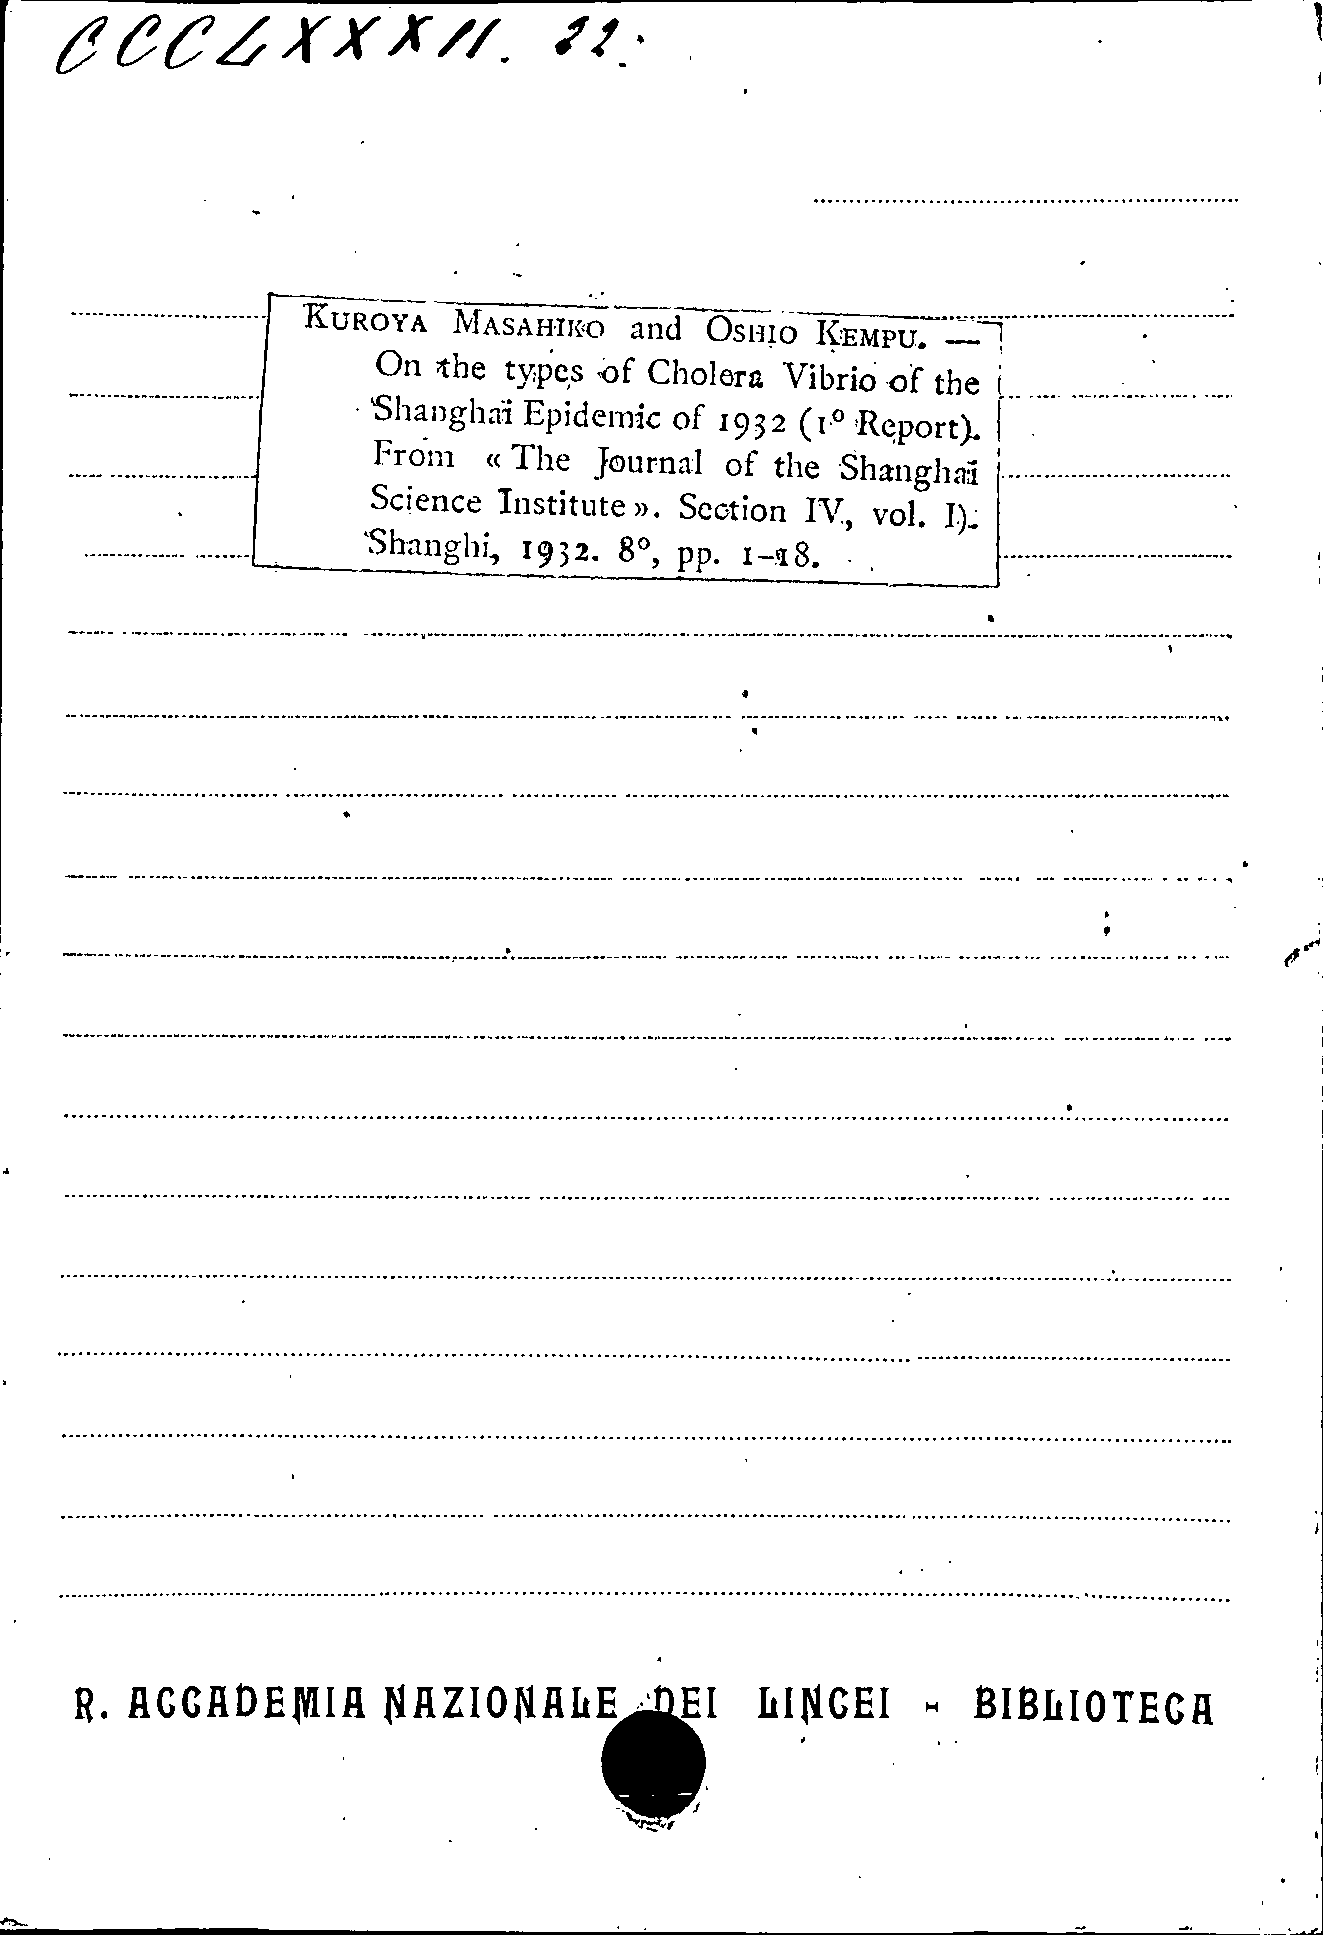 CCCLXXXII. 22.
KUROYA MASAHIKO and OSHIO KEMPU. —
On the types of Cholera Vibrio of the
Shanghai Epidemic of 1932 (1º Report).
From « The Journal of the Shanghai
Science Institute ». Section IV, vol. I).
Shanghi, 1932. 8º, pp. 1-18.
R. ACCADEMIA NAZIONALE DEI LINCEI - BIBLIOTECA